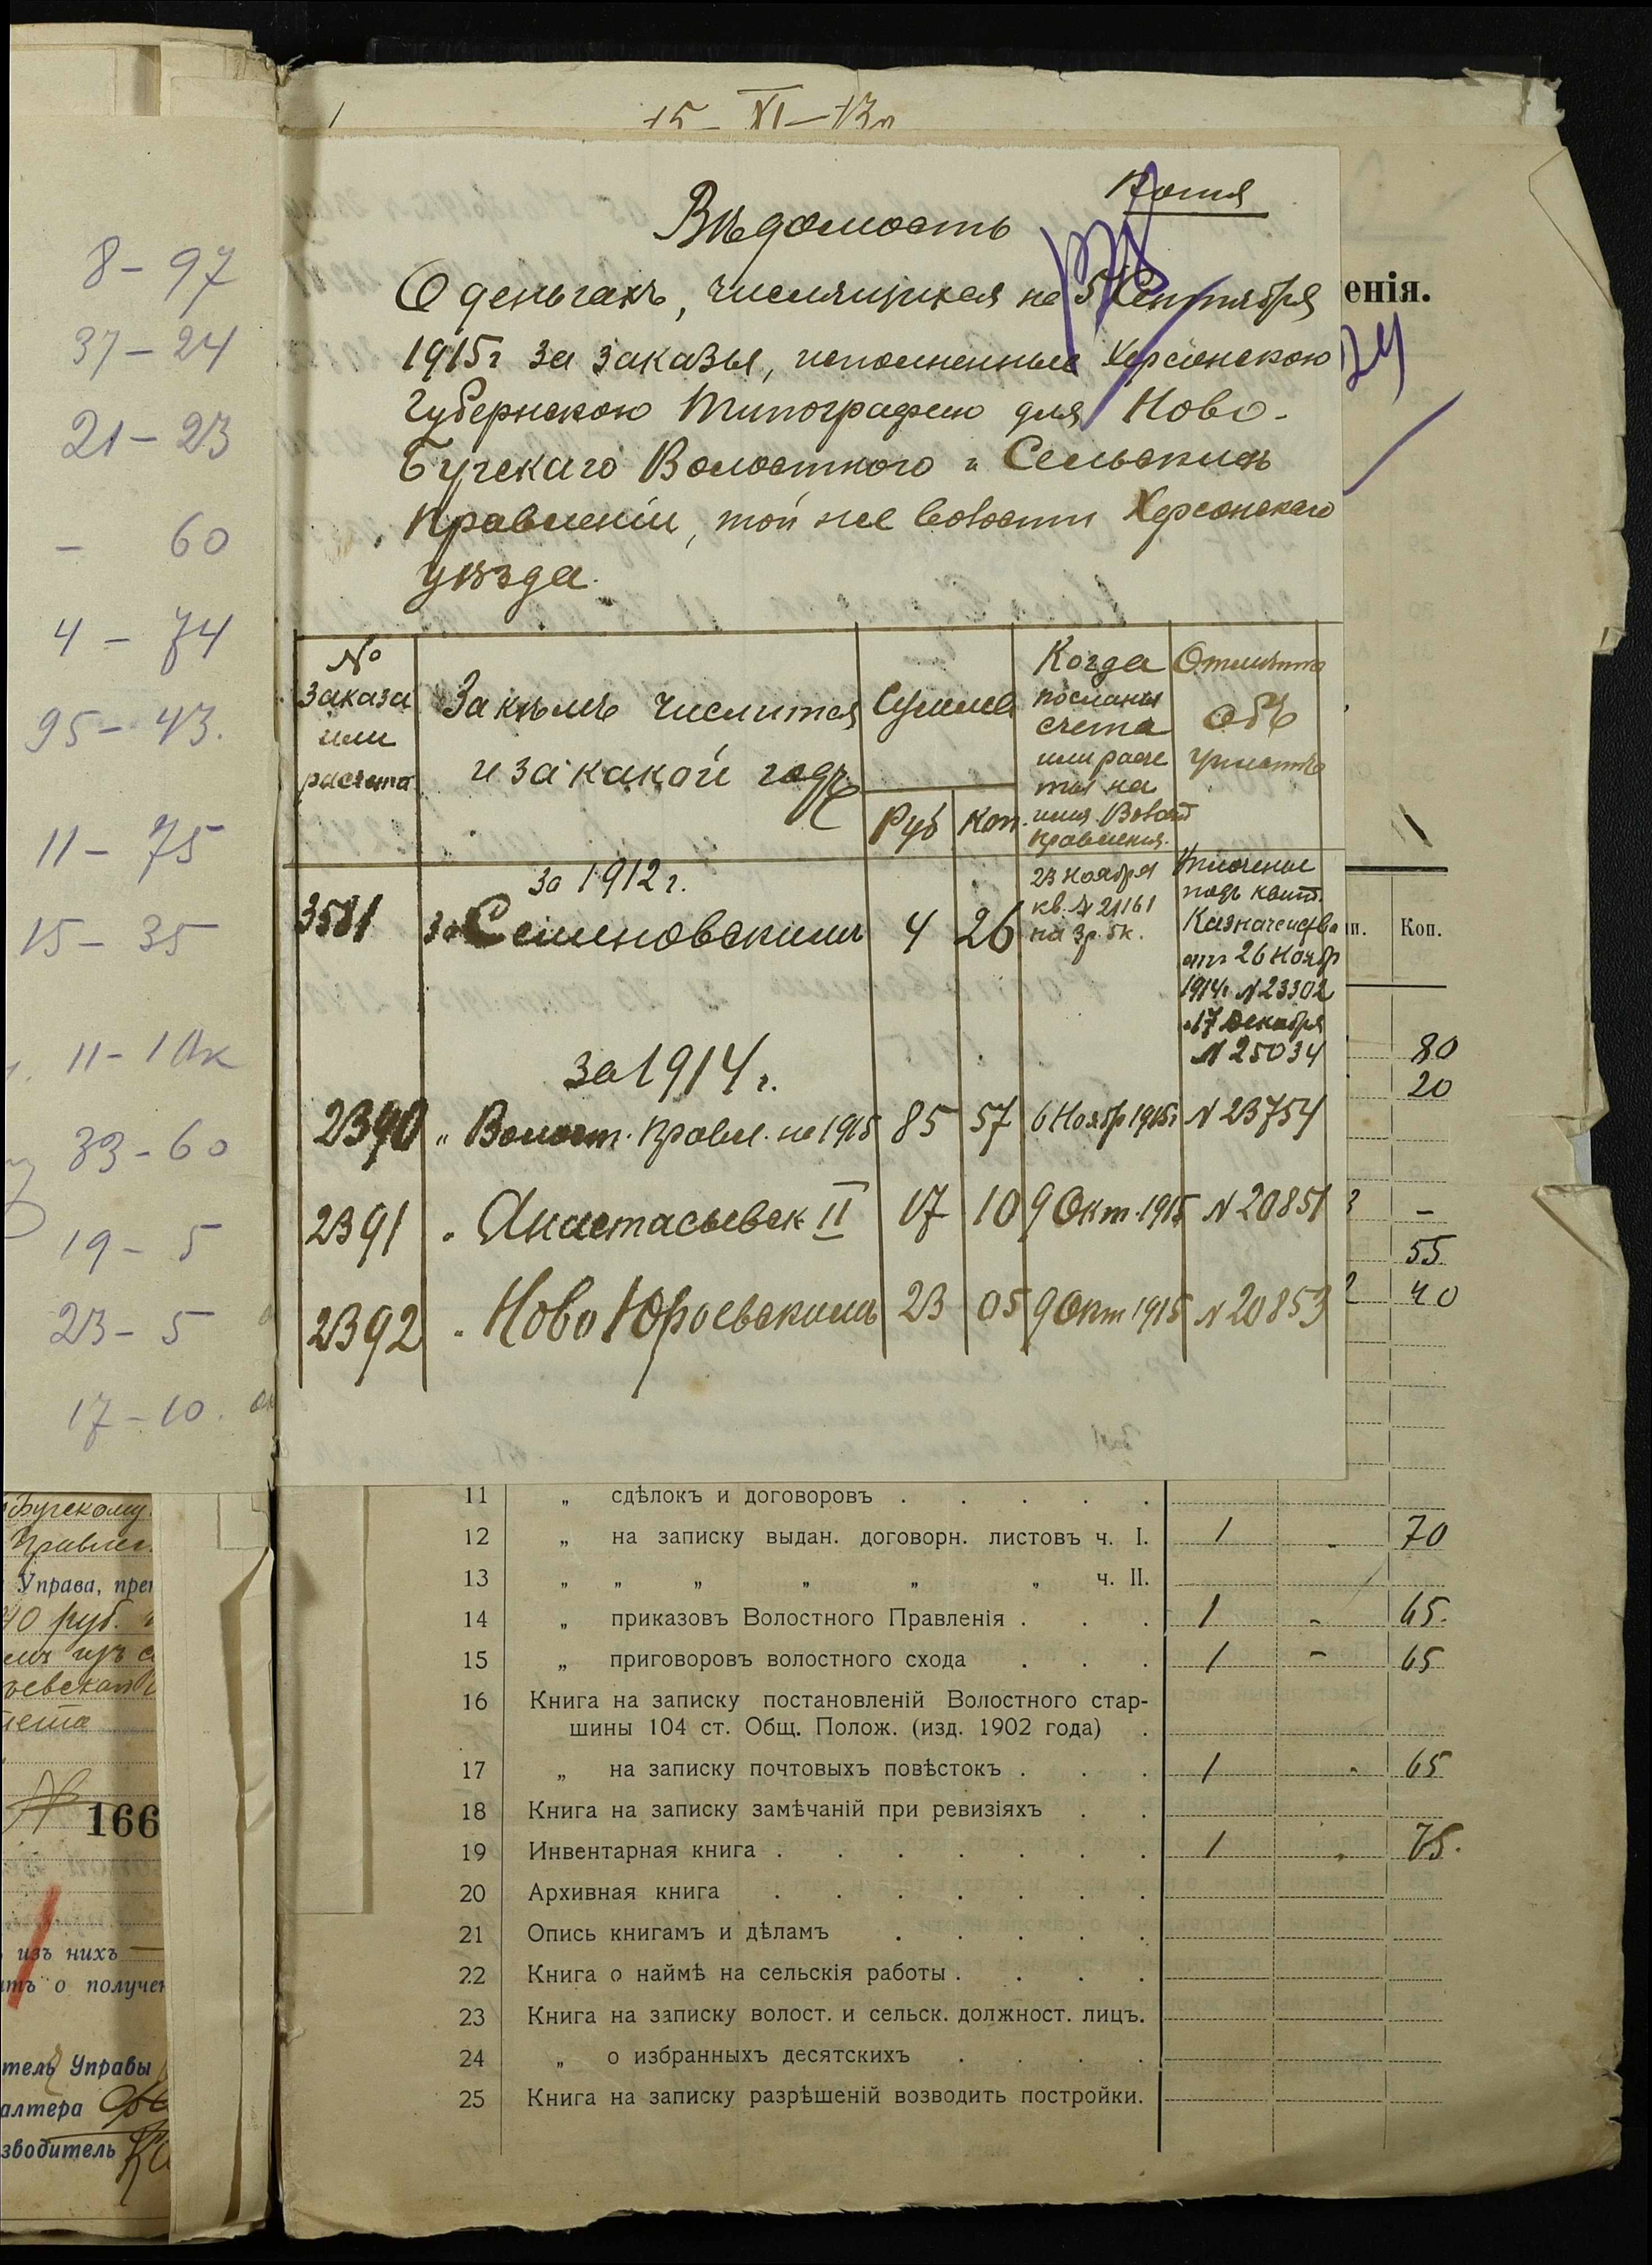 8 – 97
37 – 24
21 – 23
– 60
4 – 74
95 – 43.
11 – 75
15 – 35
11 – 10к
33 – 60
19 – 5
23 – 5
17 – 10.
Бугскому
Правлен.
Управа, пре
40 руб.
166
изъ нихъ —
о получен
тель Управы
алтера
зводитель
15 – XI – 13г
Копія
Вѣдомость
О деньгахъ, числящихся на 5 Сентября
1915г за заказы, исполненные Херсонскою
Губернскою Типографіею для Ново-
Бугскаго Волостного и Сельскихъ
Правленій, той же волости Херсонскаго
уѣзда.
№ заказа или расчета
За кѣмъ числится и за какой годъ
Сумма
Руб Коп.
Когда посланы счета или расчеты на имя Волост Правленія.
Отмѣтка объ уплатѣ
за 1912 г.
3581 за Семеновскимъ 4 26
23 Ноября
кв. № 21161
на 3р. 5к.
Уплочены
подъ квит.
Казначейства
отъ 26 Нояб
1914г. № 23302
17 Декабря
№ 25034
за 1914 г.
2390 „ Волост. Правл. на 1915 85 57 6 Нояб 1915г № 23754
2391 „ Анастасьевск II 17 10 9 Окт. 1915 № 20851
2392 „ Ново Юрьевскимъ 23 05 9 Окт 1915 № 20853
енія.
24
Коп.
80
20
–
55
40
11 „ сдѣлокъ и договоровъ . . . . .
12 „ на записку выдан. договорн. листовъ ч. I. 1 - 70
13 „ „ „ „ „ „ ч. II.
14 „ приказовъ Волостного Правленія . . . 1 - 65.
15 „ приговоровъ волостного схода . . . 1 - 65
16 Книга на записку постановленій Волостного стар-
шины 104 ст. Общ. Полож. (изд. 1902 года) .
17 „ на записку почтовыхъ повѣстокъ . . . 1 - 65
18 Книга на записку замѣчаній при ревизіяхъ . .
19 Инвентарная книга . . . . . . . 1 - 75.
20 Архивная книга . . . . . . .
21 Опись книгамъ и дѣламъ . . . . .
22 Книга о наймѣ на сельскія работы . . . .
23 Книга на записку волост. и сельск. должност. лицъ.
24 „ о избранныхъ десятскихъ . . . .
25 Книга на записку разрѣшеній возводить постройки.